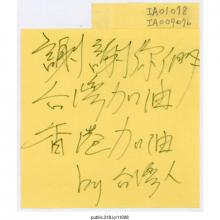 IA01078
IA009076
謝謝你们
台灣加油
香港加油
by 台灣人
public.318.io/11008